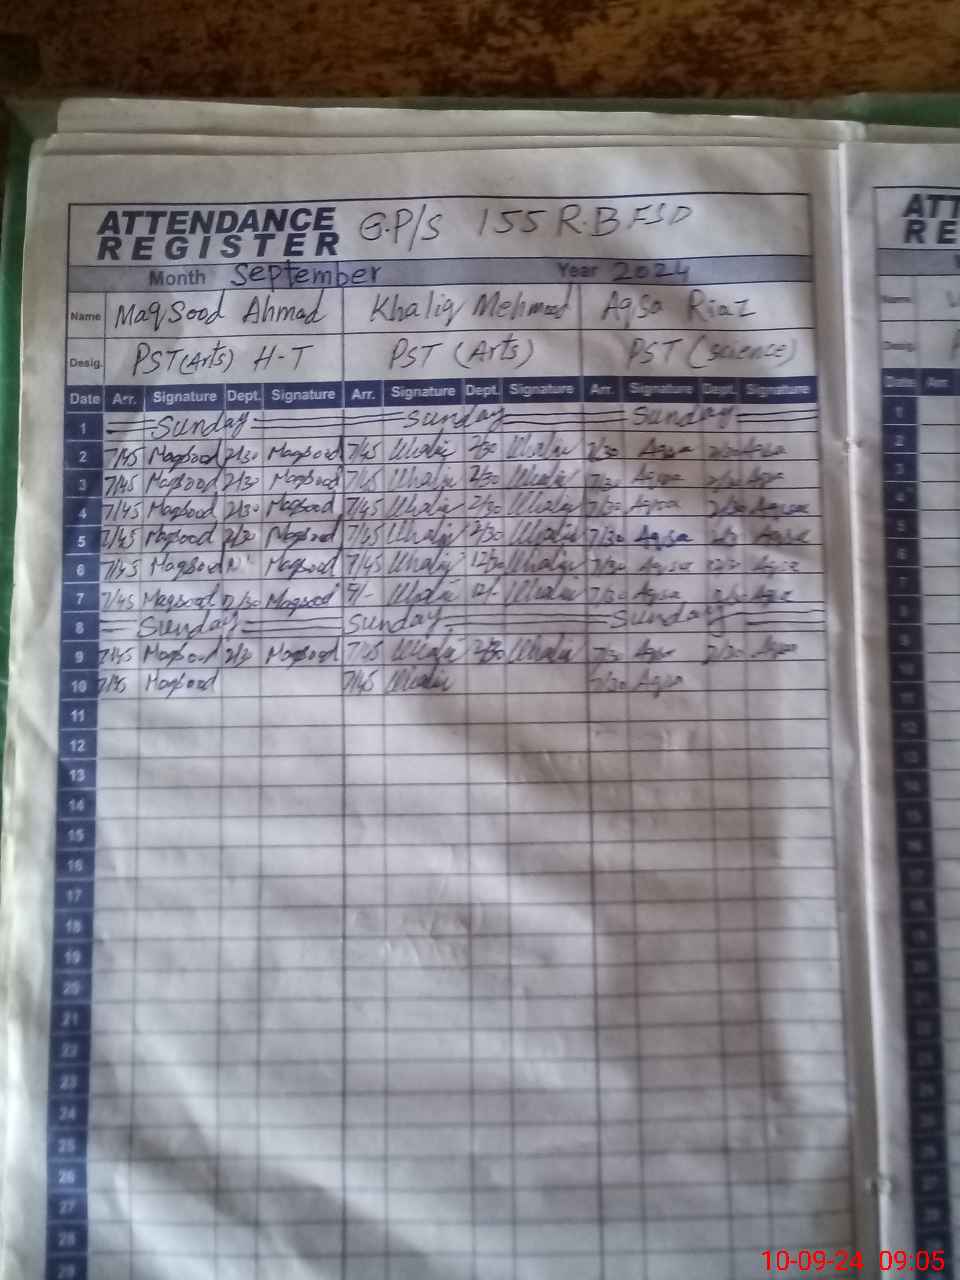 ATTENDANCE REGISTER G.P/S 155 R.B FSD
Month September Year 2024
Name Maqsood Ahmad Khaliq Mehmood Aqsa Riaz
Desig. PST(Arts) H-T PST (Arts) PST (science)
Date Arr. Signature Dept. Signature Arr. Signature Dept. Signature Arr. Signature Dept. Signature
1 Sunday Sunday Sunday
2 7/45 Maqsood 2/30 Maqsood 7/45 Khaliq 2/30 Khaliq 7/30 Aqsa 2/30 Aqsa
3 7/45 Maqsood 2/30 Maqsood 7/45 Khaliq 2/30 Khaliq 7/30 Aqsa Aqsa
4 7/45 Maqsood 2/30 Maqsood 7/45 Khaliq 2/30 Khaliq 7/30 Aqsa 2/30 Aqsa
5 7/45 Maqsood 2/30 Maqsood 7/45 Khaliq 2/30 Khaliq 7/30 Aqsa Aqsa
6 7/45 Maqsood Maqsood 7/45 Khaliq 12/30 Khaliq 7/30 Aqsa 12/30 Aqsa
7 7/45 Maqsood 12/30 Maqsood Khaliq 12/- Khaliq 7/30 Aqsa Aqsa
8 Sunday Sunday Sunday
9 7/45 Maqsood 2/30 Maqsood 7/45 Khaliq 2/30 Khaliq 7/30 Aqsa 2/30 Aqsa
10 7/45 Maqsood 7/45 Khaliq 7/30 Aqsa
11
12
13
14
15
16
17
18
19
20
21
22
23
24
25
26
27
28
29
ATT
RE
Name
Desig.
Date Arr.
1
2
3
4
5
6
7
8
9
10
11
12
13
14
10-09-24 09:05